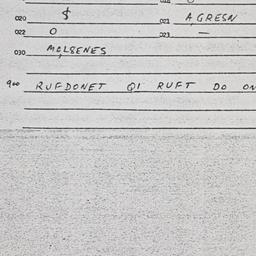 020 $ 021 AGRESN
022 0 023 —
030 MCLSENES
900 RUFDONET QI RUFT DO ON